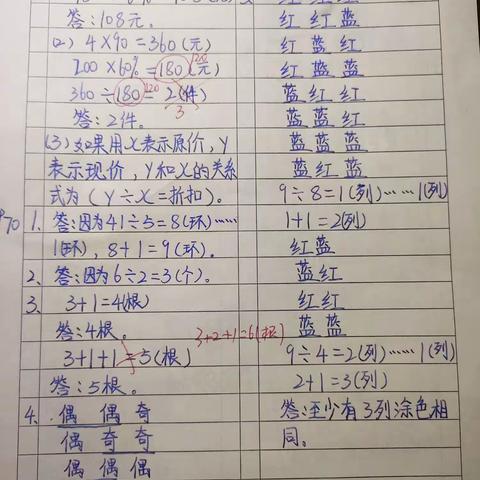 答：108元。
(2) 4×90=360(元)
200×60%=180(元)
120
360÷180=2(件)
120
3
答：2件。
(3)如果用x表示原价，y
表示现价，y和x的关系
式为(y÷x=折扣)。
P70 1、答：因为41÷5=8(环)……
1(环)，8+1=9(环)。
2、答：因为6÷2=3(个)。
3、3+1=4(根)
答：4根。
3+1+1=5(根)
3+2+1=6(根)
答：5根。
4、偶 偶 奇
偶 奇 奇
偶 偶 偶
红 红 蓝
红 蓝 红
红 蓝 蓝
蓝 红 红
蓝 蓝 红
蓝 蓝 蓝
蓝 红 蓝
9÷8=1(列)……1(列)
1+1=2(列)
红蓝
蓝红
红红
蓝蓝
9÷4=2(列)……1(列)
2+1=3(列)
答：至少有3列涂色相
同。